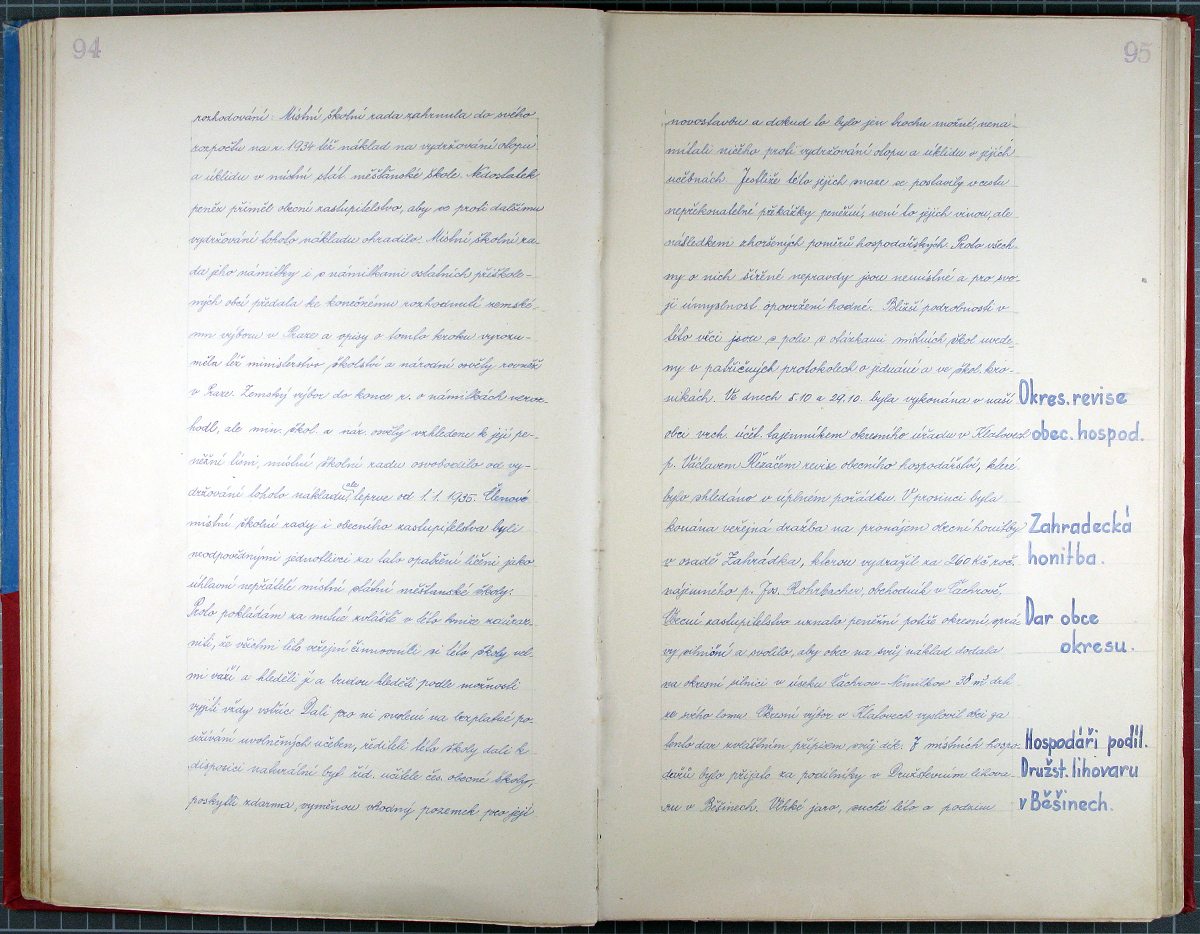 94
rozhodování: Místní školní rada zahrnula do svého
rozpočtu na r. 1934 též náklad na vydržování otopu
a úklidu v místní stát. měšťanské škole. Nedostatek
peněz přiměl obecní zastupitelstvo, aby se proti dalšímu
vydržování tohoto nákladu ohradilo. Místní školní ra-
da jeho námitky i s námitkami ostatních přiškole-
ných obcí předala ke konečnému rozhodnutí zemské-
mu výboru v Praze a opisy o tomto kroku vyrozu-
měla též ministerstvo školství a národní osvěty rovněž
v Praze. Zemský výbor do konce r. o námitkách neroz-
hodl, ale min. škol. a nár. osvěty vzhledem k její pe-
něžní tísni, místní školní radu osvobodilo od vy-
držování tohoto nákladu, ale teprve od 1. 1. 1935. Členové
místní školní rady i obecního zastupitelstva byli
neodpovědnými jednotlivci za toto opatření líčeni jako
úhlavní nepřátelé místní státní měšťanské školy.
Proto pokládám za nutné zvláště v této knize zdůraz-
niti, že všichni tito veřejní činovníci si této školy vel-
mi váží a hleděli jí a budou hleděti podle možnosti
vyjíti vždy vstříc. Dali pro ni svolení na bezplatné po-
užívání uvolněných učeben, řediteli této školy dali k
disposici naturální byt říd. učitele čes. obecné školy,
poskytli zdarma výměnou vhodný pozemek pro její
95
novostavbu a dokud to bylo jen trochu možné, nena-
mítali ničeho proti vydržování otopu a úklidu v jejích
učebnách. Jestliže této jejich snaze se postavily v cestu
nepřekonatelné překážky peněžní, není to jejich vinou, ale
následkem zhoršených poměrů hospodářských. Proto všech-
ny o nich šířené nepravdy jsou nemístné a pro svo-
ji úmyslnost opovržení hodné. Bližší podrobnosti v
této věci jsou s polu s otázkami místních škol uvede-
ny v patřičných protokolech o jednání a ve škol. kro-
nikách. Ve dnech 5.10 a 29.10. byla vykonána v naší
Okres. revise
obci vrch. účet. tajemníkem okresního úřadu v Klatovech
obec. hospod.
p. Václavem Řezáčem revise obecního hospodářství, které
bylo shledáno v úplném pořádku. V prosinci byla
konána veřejná dražba na pronájem obecní honitby
Zahradecká
v osadě Zahrádka, kterou vydražil za 260 Kč roč.
honitba.
nájemného p. Jos. Rohrbacher, obchodník v Čachrově.
Obecní zastupitelstvo uznalo peněžní potíže okresní sprá-
Dar obce
vy silniční a svolilo, aby obec na svůj náklad dodala
okresu.
na okresní silnici v úseku Čachrov - Nemilkov 38 m³ drti
ze svého lomu. Okresní výbor v Klatovech vyslovil obci za
tento dar zvláštním přípisem svůj dík. 7 místních hospo-
Hospodáři podíl.
dářů bylo přijato za podílníky v Družstevním lihova-
Družst. lihovaru
ru v Běšinech. Vlhké jaro, suché léto a podzim
v Běšinech.